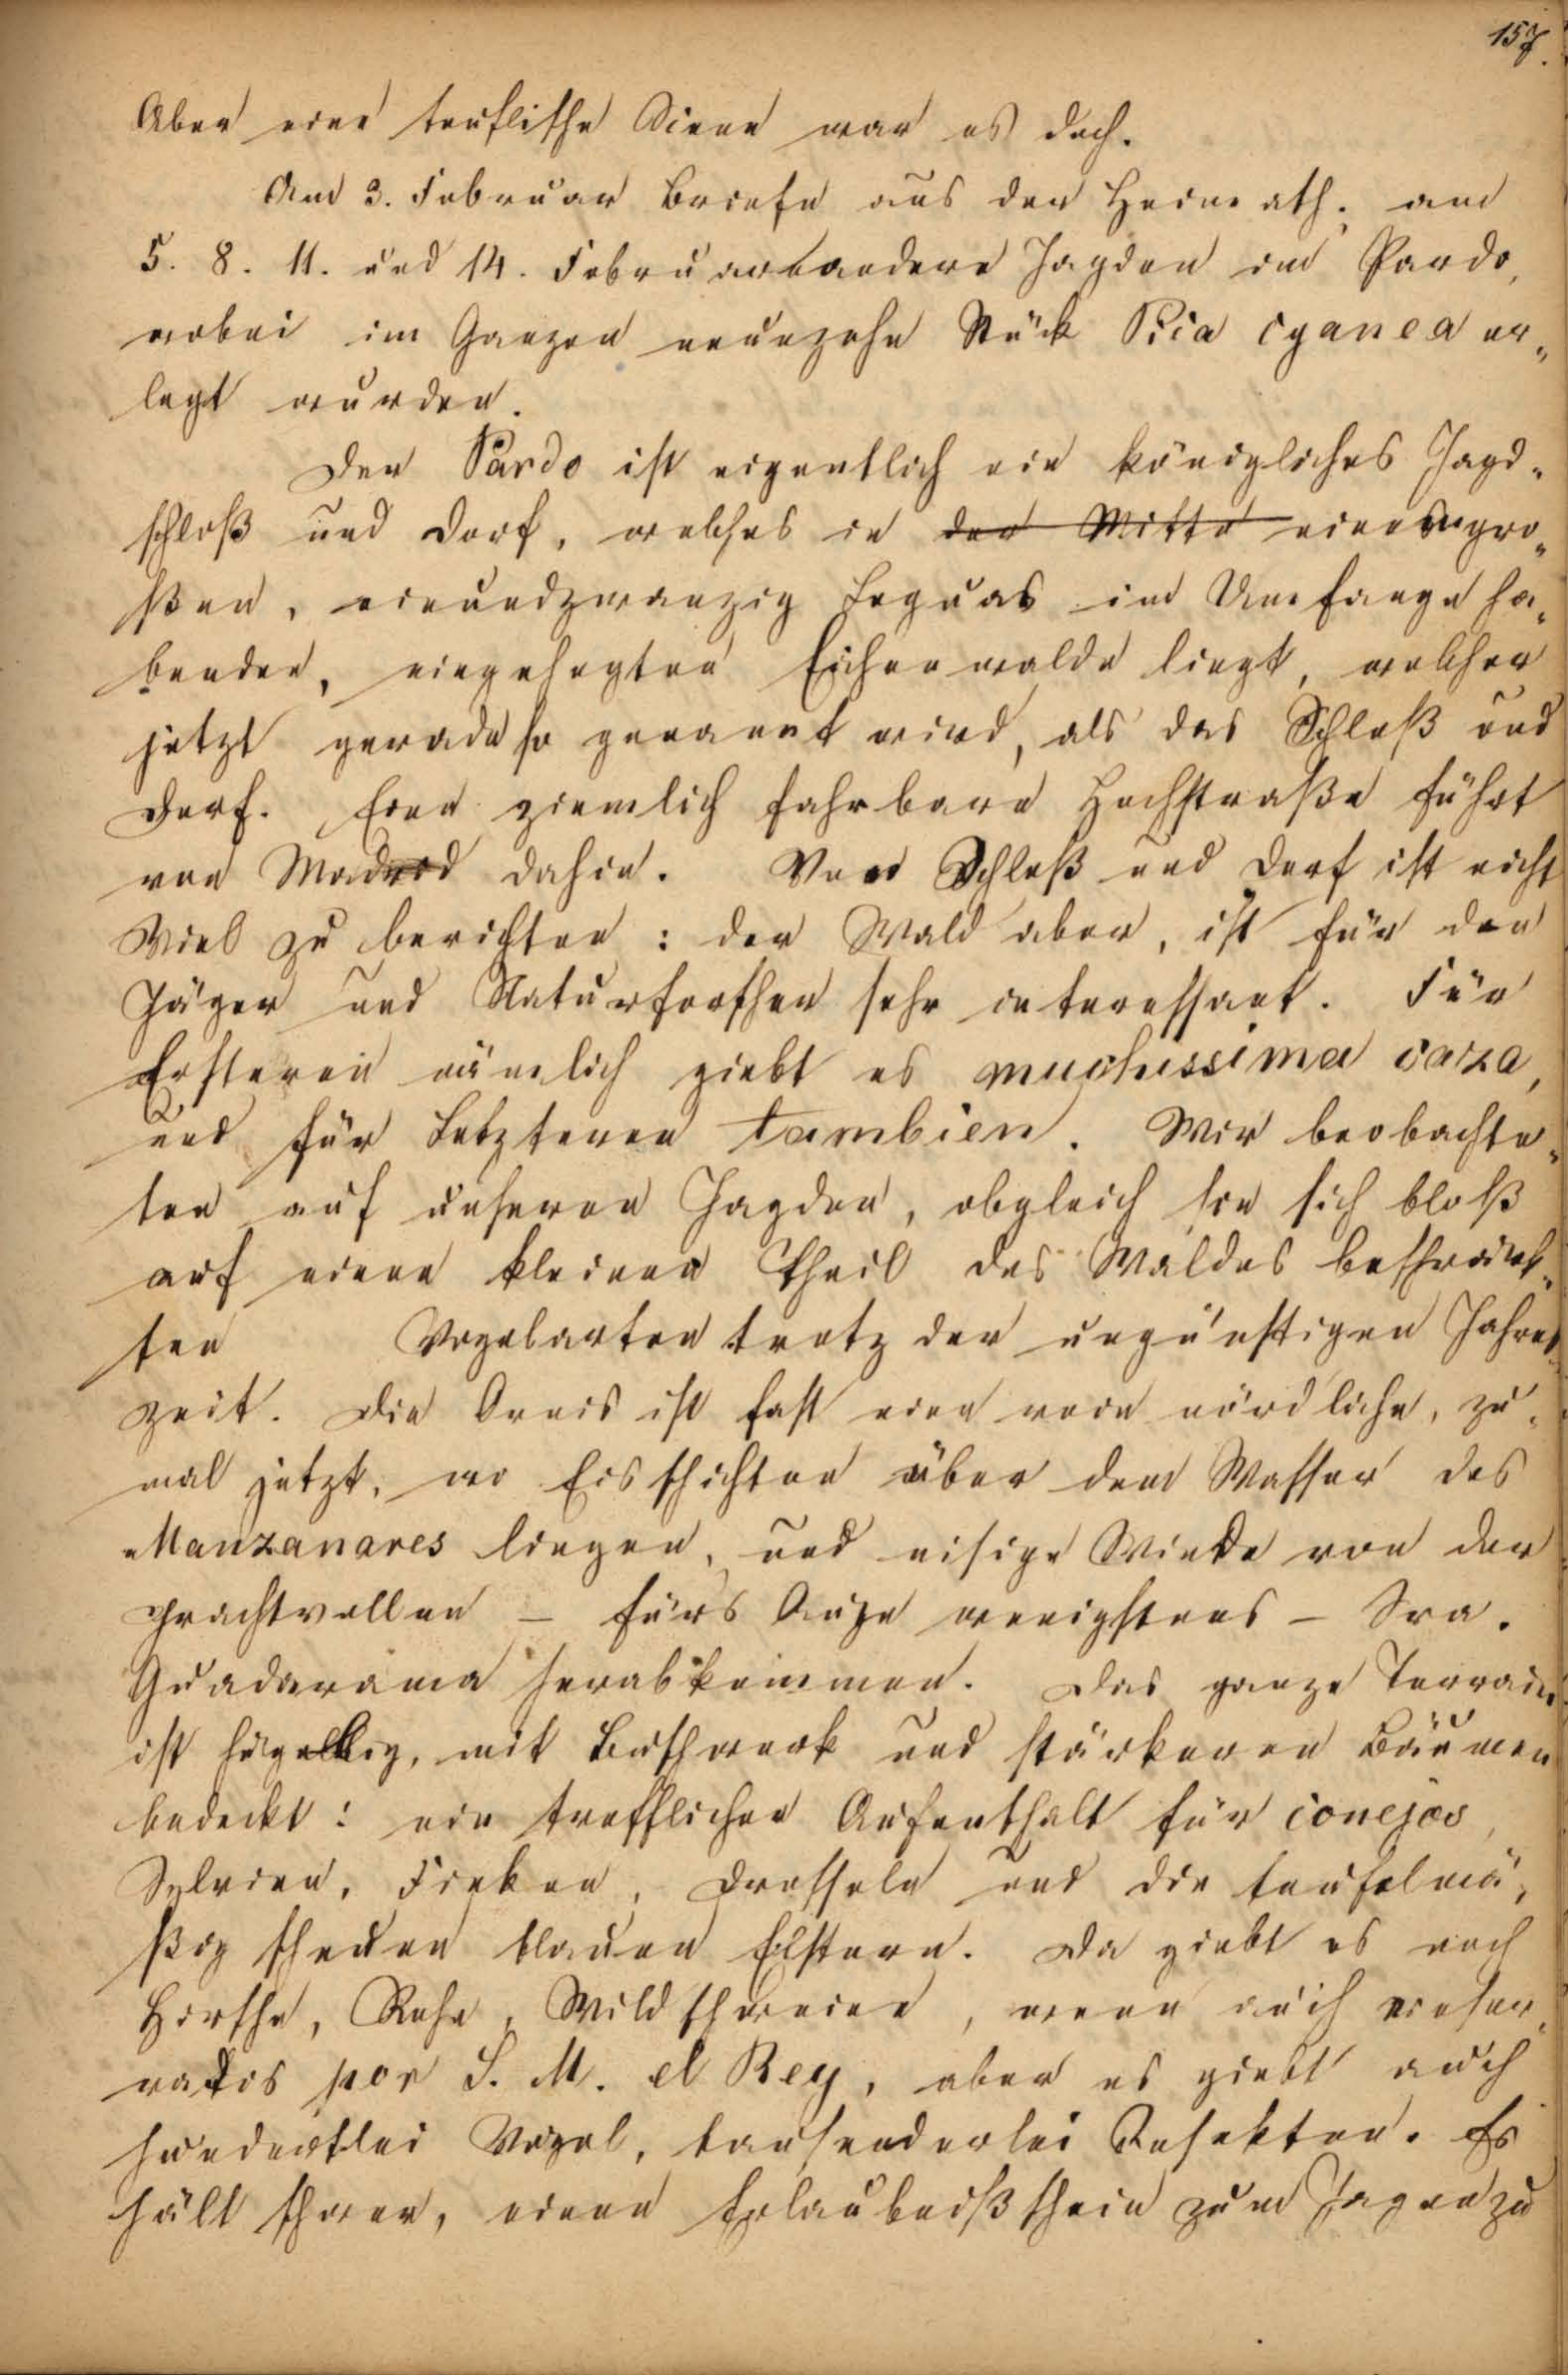 157.
Aber eine teuflische Scene war es doch.
Am 3. Februar Briefe aus der Heimath; am
5. 8. 11. und 14. Februar andere Jagden im Pardo,
wobei im Ganzen neunzehn Stück Pica cyanea er„
legt wurden.
Der Pardo ist eigentlich ein königliches Jagd„
schloß und Dorf, welches in der Mitte eines gro„
ßen, einundzwanzig Leguas im Umfange ha„
benden, eingehegten Eichenwalde liegt, welcher
jetzt gerade so genannt wird, als das Schloß und
Dorf. Eine ziemlich fahrbare Hochstraße führt
von Madrid dahin. Vom Schloß und Dorf ist nicht
Viel zu berichten: der Wald aber, ist für den
Jäger und Naturforscher sehr interessant. Für
Ersteren nämlich giebt es muchissima caza,
und für Letzteren tambien. Wir beobachte„
ten auf unseren Jagden, obgleich sie sich bloß
auf einen kleinen Theil des Waldes beschränk„
ten Vogelarten trotz der ungünstigen Jahres„
zeit. Die Ornis ist fast eine rein nördliche, zu„
mal jetzt, wo Eisschichten über dem Wasser des
Manzanares liegen, und eisige Winde von der
prachtvollen – fürs Auge wenigstens – Sra.
Guadarama herabkommen. Das ganze Terrain
ist hügelig, mit Buschwerk und stärkeren Bäumen
bedeckt: ein trefflicher Aufenthalt für conejos,
Sylvien, Finken, Drosseln und die teufelmä„
ßig scheuen blauen Elstern. Da giebt es noch
Hirsche, Rehe, Wildschweine, wenn auch reser„
vados por S. M. el Rey, aber es giebt auch
hunderterlei Vögel, tausenderlei Insekten. Es
hält schwer, einen Erlaubnißschein zum Jagen zu